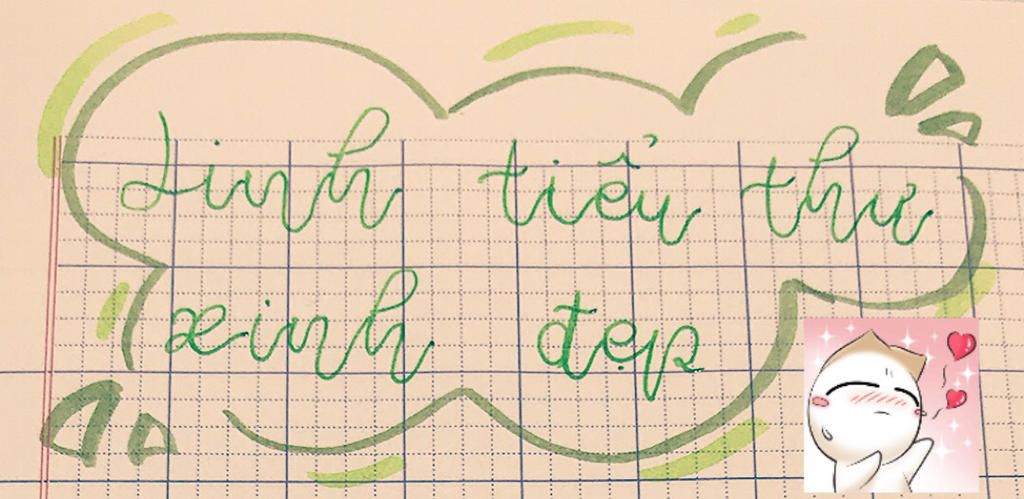 Linh tiểu thư
xinh đẹp